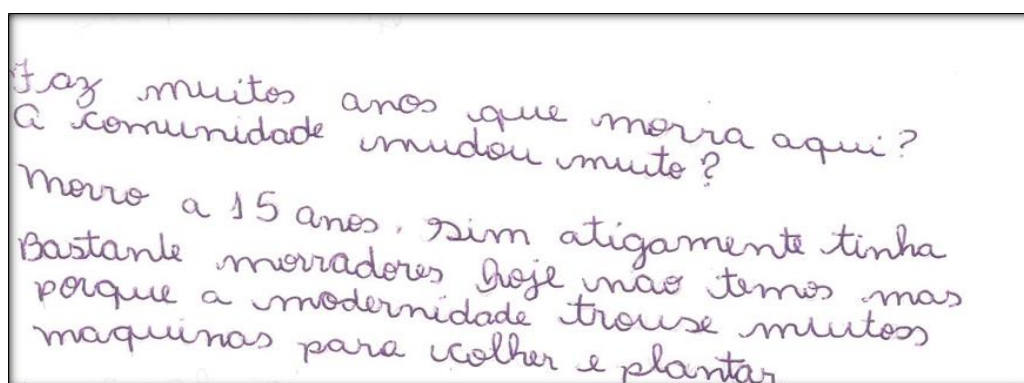 Faz muitos anos que morra aqui?
A comunidade mudou muito?
Morro a 15 anos, sim atigamente tinha
Bastante morradores hoje não temos mas
porque a modernidade trouse muitoss
maquinas para colher e plantar